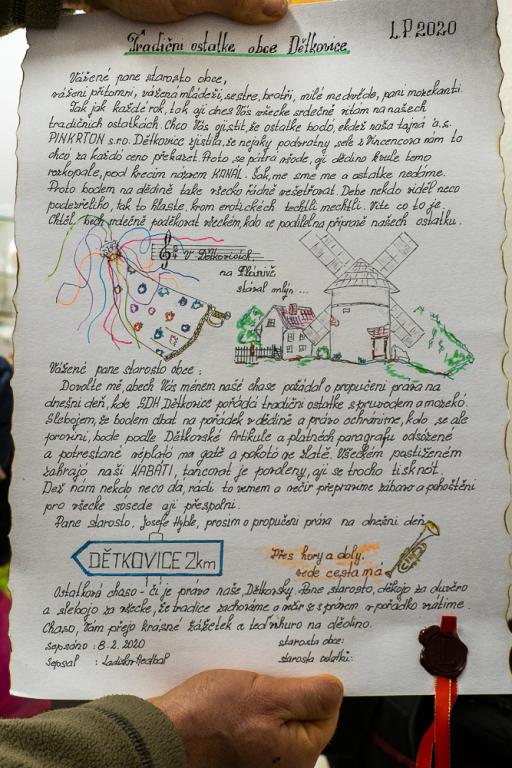 L.P. 2020
Tradični ostatke obce Dětkovice
Vážené pane starosto obce,
vážení přítomní, vážená mládeži, sestre, bratři, milé medvěde, pani mozekanti.
Tak jak každé rok, tak aji dnes Vás všecke srdečně vítám na našech
tradičních ostatkách. Chco Vás ojistit, že ostatke bodó, ekdež naša tajná a.s.
PINKRTON s.r.o. Dětkovice zjistila, že nejaký podvratny sele z Vincencova nám to
chco za každó ceno překazet. Proto se pátrá všode, aji dědino kvule temo
rozkopale, pod krecím názvem KANÁL. Šak, me sme me a ostatke nedáme.
Proto bodem na dědině take všecko řádně vešetřovat. Debe nekdo viděl neco
podezřelýho, tak to hlaste, krom erotickéch techtli mechtli. Vite co to je.
Chtěl bech srdečně poděkovat všeckém, kdo se podílelina přípravě našech ostatku.
V Dětkovicích
na Plánivě
stával mlýn...
Vážené pane starosto obce:
Dovolte mě, abech Vás ménem našé chase požádal o propučeni práva na
dnešni deň, kde SDH Dětkovice pořádá tradični ostatke s pruvodem a mozekó.
Slebojem, že bodem dbat na pořádek v dědině a právo ochráníme, kdo se ale
provini, bode podle Dětkovské Artikule a platnéch paragrafu odsózené
a potrestané véplató na gatě a pokotó ve zlatě. Všeckém postiženém
zahrajó naši KABÁTI, tancovat je povoleny, aji se trocho tisknót.
Dež nám nekdo neco dá, rádi to vemem a večír přepravime zábavo a pohoštění
pro všecke sosede aji přespolni.
Pane starosto, Josefe Hýble, prosim o propučeni práva na dnešni deň.
DĚTKOVICE 2km
Přes hory a doly,
vede cesta má
Ostatková chaso - či je právo naše Dětkovsky. Pane starosto, děkojo za duvěro
a slebojo za všecke, že tradice zachováme a večír se s právem v pořádko vrátime.
Chaso, Vám přejo krásné zážetek a teď vhuro na dědino.
Sepsáno : 8.2. 2020
starosta obce:
Sepsal : Ladislav Nedbal
starosta ostatků: